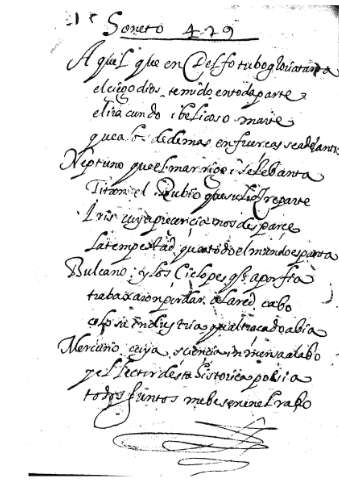 Soneto 429
Aquel que en Delfo tubo gloria tanta
el ciego dios temido en toda parte
el ira cundo i belicoso marte
que a los de demas en fuercas se adelanta
Neptuno que el mar rige i se lebanta
Titan el Rubio que su luz reparte
Iris cuya presencia nos desparce
la tempestad que a todo el mundo espanta
Bulcano y los Ciclopes q a porfia
trabaxaron por dar de la red cabo
con su industria
Mercurio cuya sciencia inmensa alabo
y el lector desta historica poesia
todos juntos me besen en el rabo